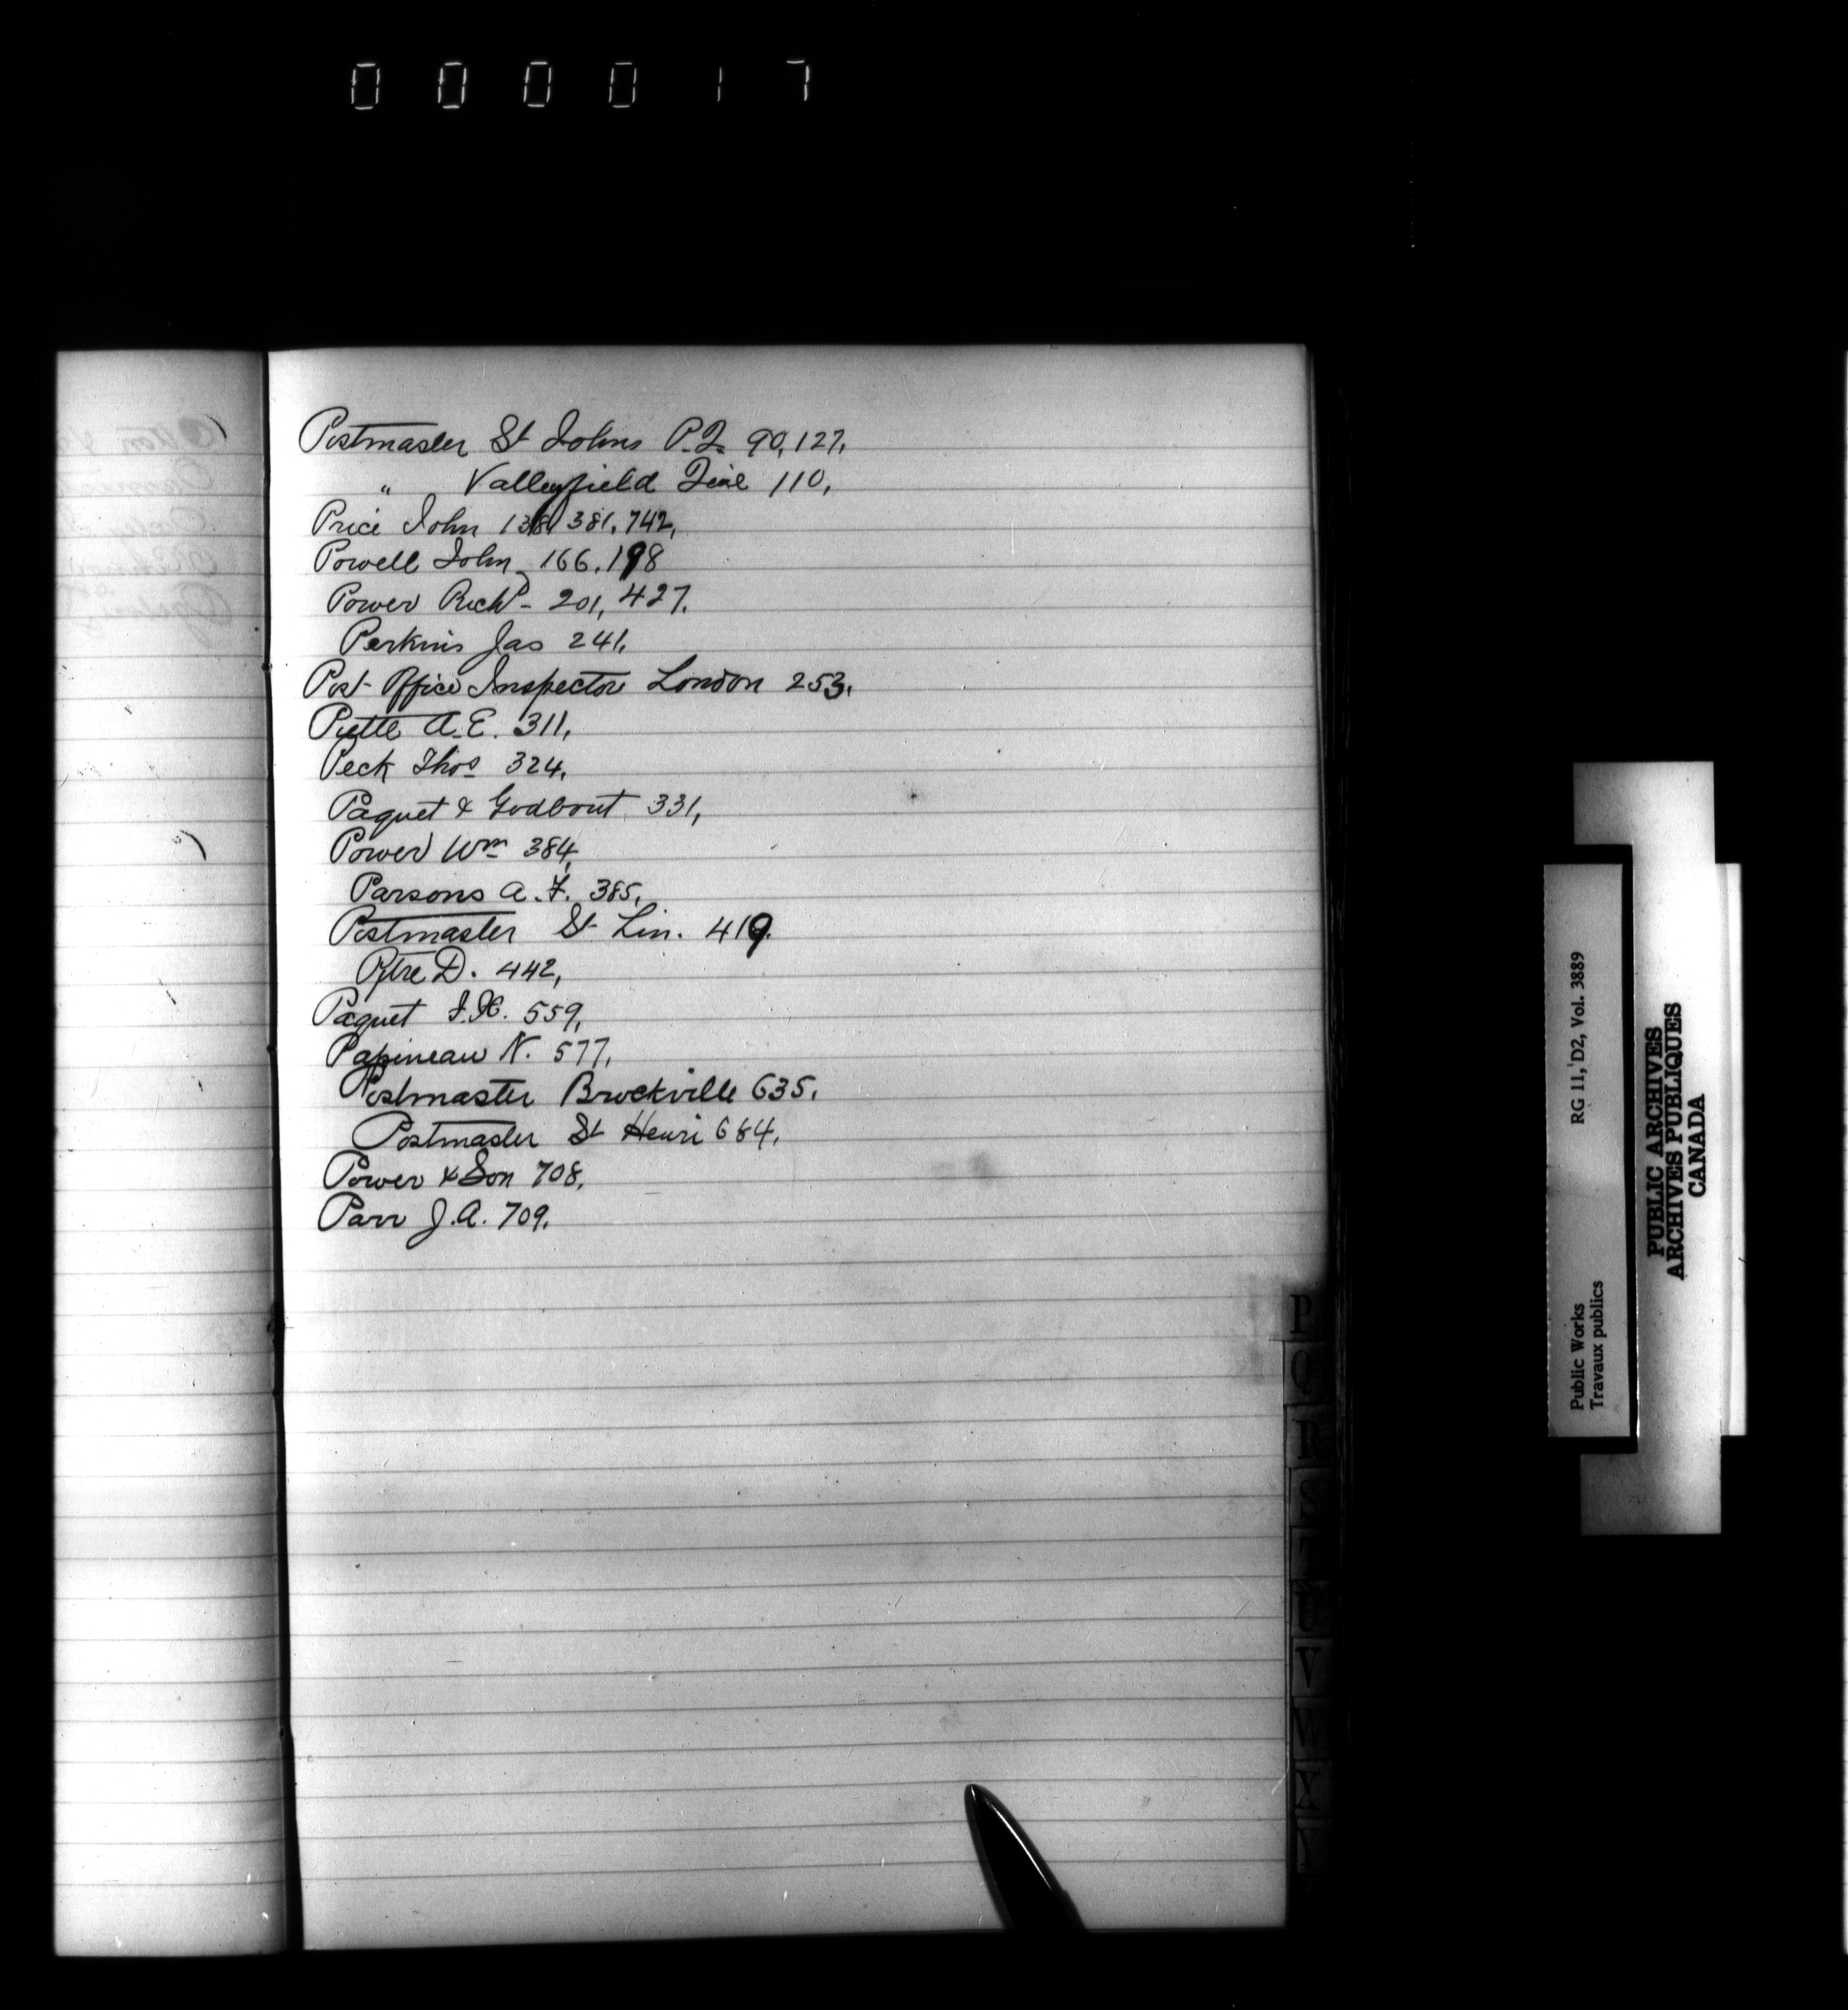 000017
Postmaster St Johns P.Q. 90, 127,
" Valleyfield 110,
Price John 138, 381, 742,
Powell John 166, 198
Power Richd - 201, 427.
Perkins Jas 241,
Post Office Inspector London 253,
Piette A.E. 311,
Peck Thos 324,
Paquet & Godbout 331,
Power Wm 384,
Parsons A.F. 385,
Postmaster St Lin. 419.
D. 442,
Paquet 559,
Papineau N. 577,
Postmaster Brockville 635.
Postmaster St Henri 684,
Power & Son 708,
Parr J.A. 709.
P
Q
R
S
T
U
V
W
X
Y
Public Works
Travaux publics
RG 11, D2, Vol. 3889
PUBLIC ARCHIVES
ARCHIVES PUBLIQUES
CANADA